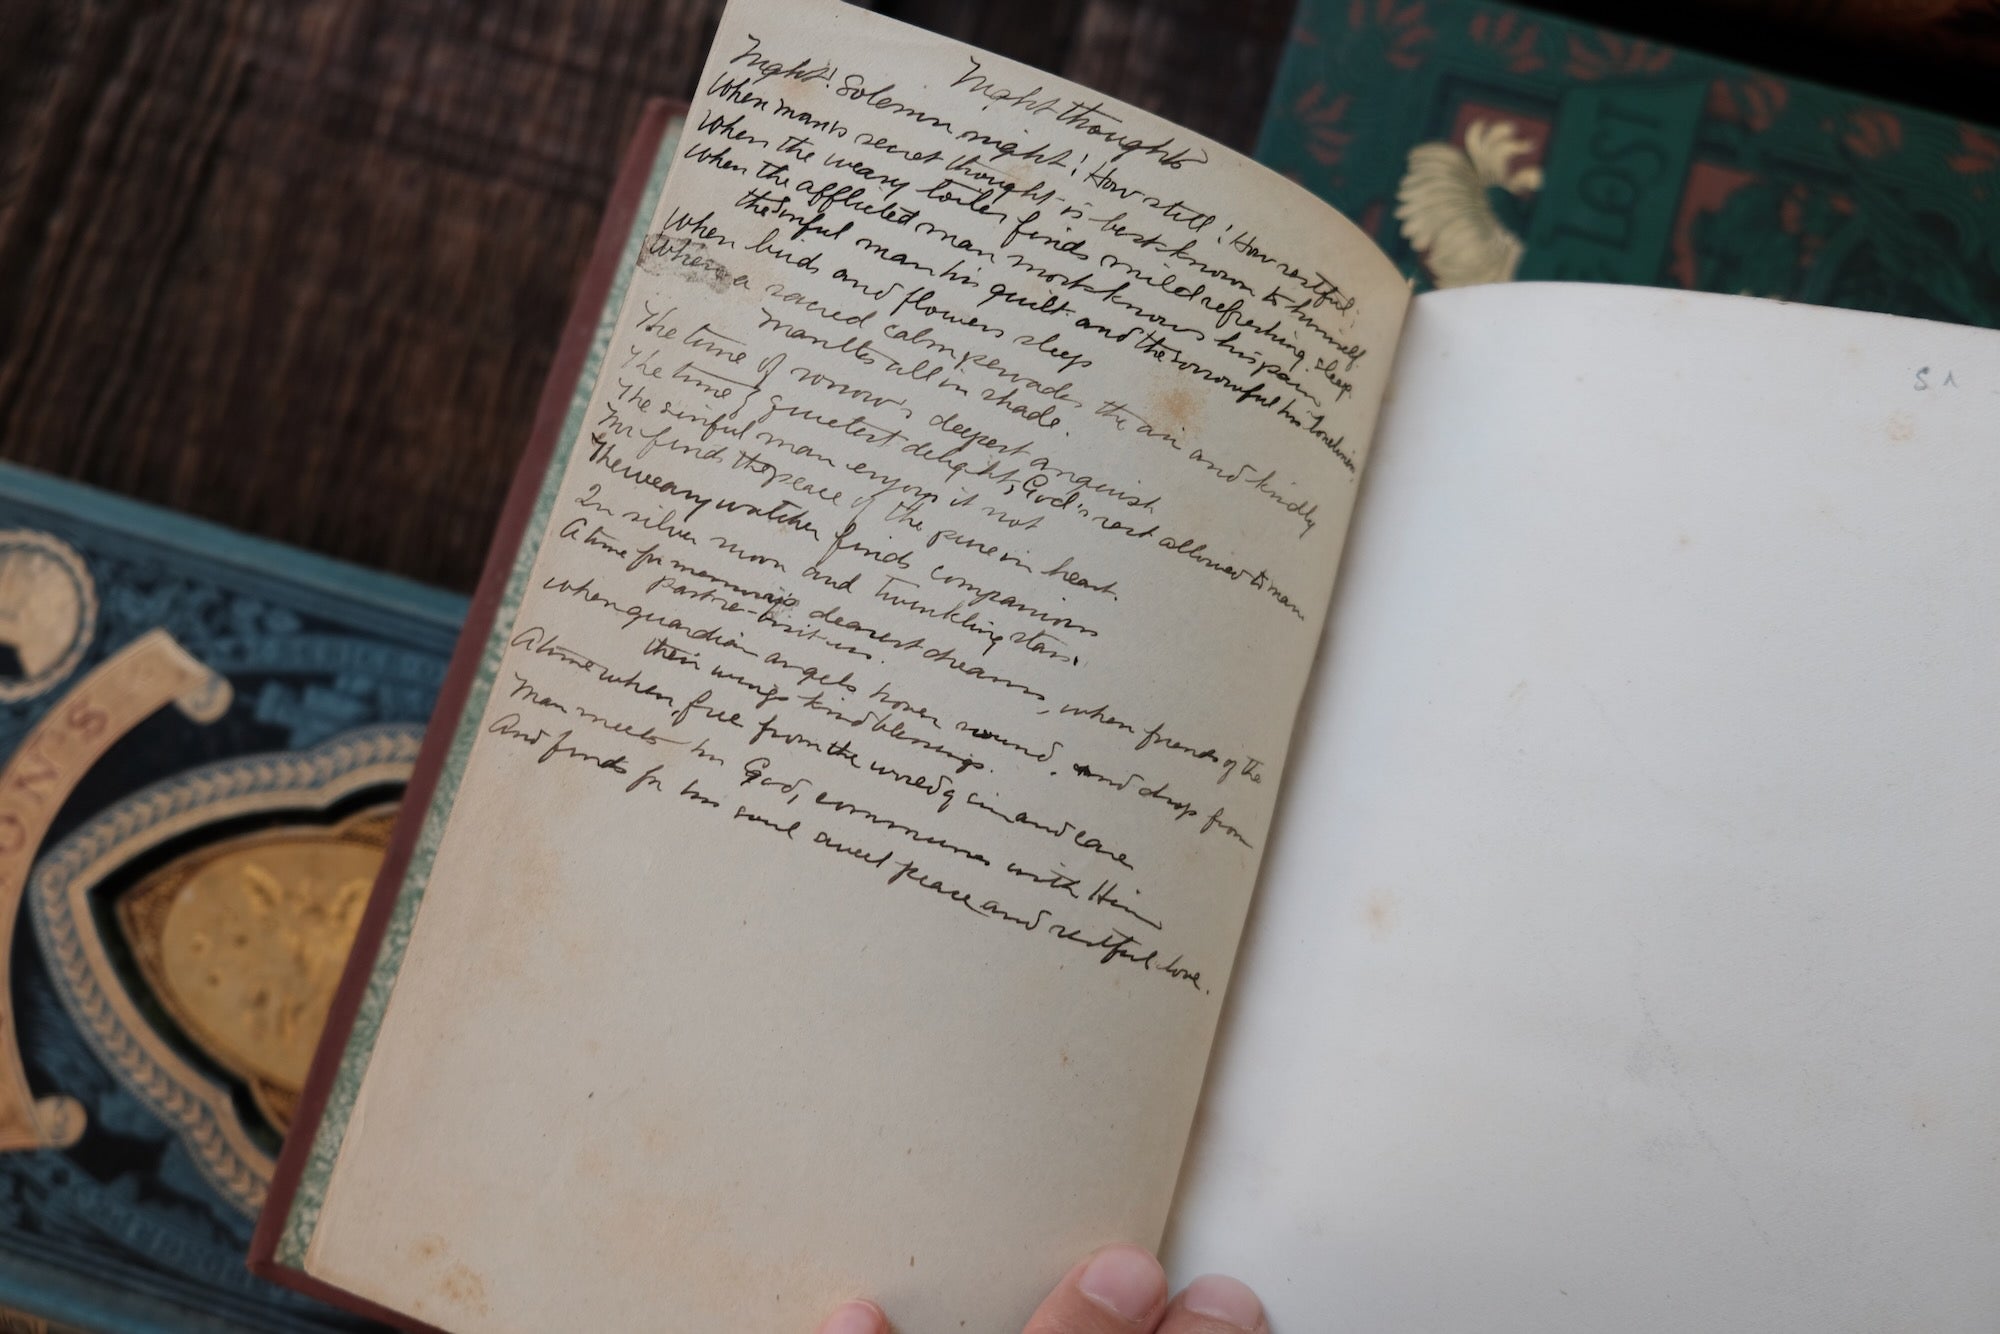 Night thoughts
Night! Solemn night! How still! How restful;
When man's secret thought is best known to himself
When the weary toiler finds mild refreshing sleep
When the afflicted man most knows his pain
the sinful man his guilt and the sorrowful his loneliness
When birds and flowers sleep
When a sacred calm pervades the air and kindly
Mantles all in shade.
The time of sorrow's deepest anguish
The time of quietest delight, God's rest allowed to man
The sinful man enjoys it not
Nor finds the peace of the pure in heart.
The weary watcher finds companions
In silver moon and twinkling stars.
A time for memory's dearest dreams, when friends of the
past re-visit us.
When guardian angels hover round and drop from
their wings kind blessings.
A time when, free from the world of sin and care
Man meets his God, communes with Him
And finds for his soul sweet peace and restful love.
LOST
ON'S